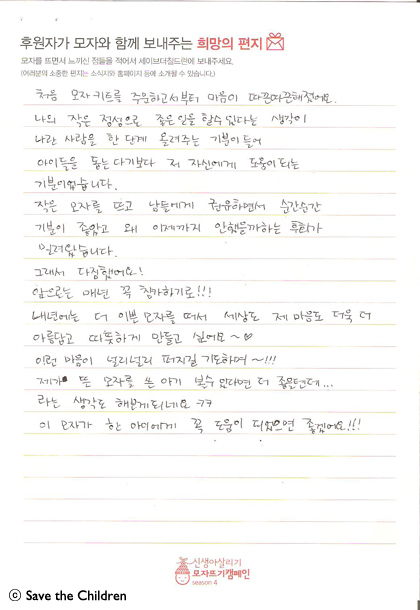 후원자가 모자와 함께 보내주는 희망의 편지
모자를 뜨면서 느끼신 점들을 적어서 세이브더칠드런에 보내주세요.
(여러분의 소중한 편지는 소식지와 홈페이지 등에 소개될 수 있습니다.)
처음 모자키트를 주문하고서부터 마음이 따끈따끈해졌어요.
나의 작은 정성으로 좋은일을 할수있다는 생각이
나란 사람을 한 단계 올려주는 기분이 들어
아이들을 돕는다기보다 저 자신에게 도움이 되는
기분이었습니다.
작은 모자를 뜨고 남들에게 권유하면서 순간순간
기분이 좋았고 왜 이제까지 안했을까하는 후회가
밀려왔습니다.
그래서 다짐했어요!
앞으로는 매년 꼭 참가하기로!!!
내년에는 더 이쁜모자를 떠서 세상도 제 마음도 더욱 더
아름답고 따뜻하게 만들고 싶어요~♡
이런 마음이 널리널리 퍼지길 기도하며~!!!
제가 뜬 모자를 쓴 아기 볼수 있다면 더 좋을텐데...
라는 생각도 해보게되네요 ㅋㅋ
이 모자가 한 아이에게 꼭 도움이 되었으면 좋겠어요!!!
신생아살리기
모자뜨기캠페인
season 4
ⓒ Save the Children